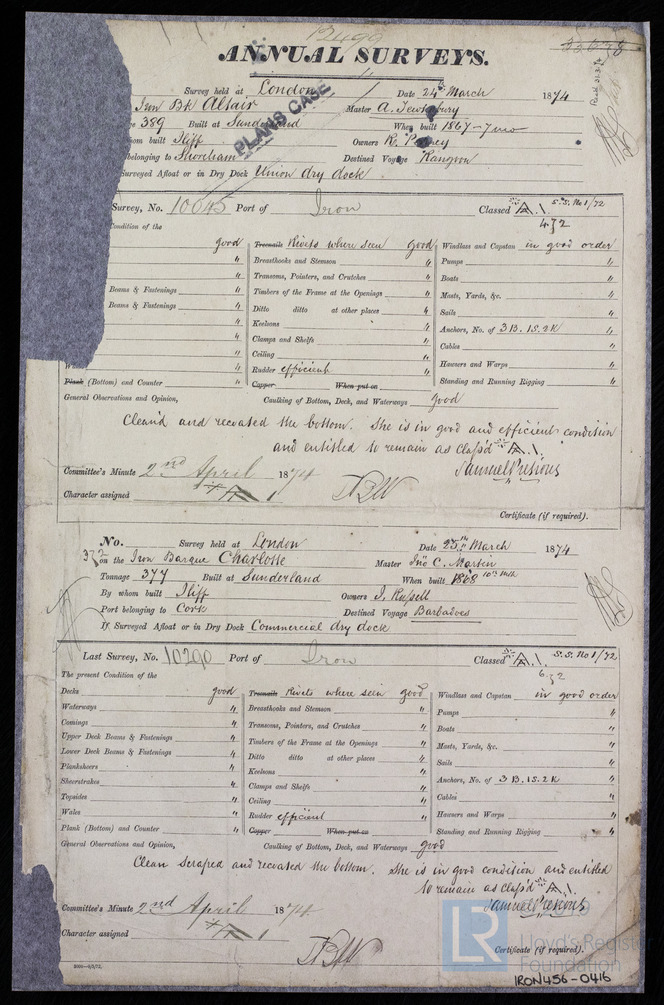 12499
33678
ANNUAL SURVEYS.
PLANS CASE
Survey held at London Date 24th March 1874
Iron Bk Altair Master A. Tewksbury
389 Built at Sunderland When built 1867-7 mo
built Iliff Owners R. Penney
belonging to Shoreham Destined Voyage Rangoon
Surveyed Afloat or in Dry Dock Union dry dock
Survey, No. 10045 Port of Iron Classed A.1. S.S. No 1/72
4,72
Condition of the
good Treenails Rivets where seen good Windlass and Capstan in good order
" Breasthooks and Stemson " Pumps "
" Transoms, Pointers, and Crutches " Boats "
Beams & Fastenings " Timbers of the Frame at the Openings " Masts, Yards, &c. "
Beams & Fastenings " Ditto ditto at other places " Sails "
" Keelsons " Anchors, No. of 3 B. 1 S. 2 K "
" Clamps and Shelfs " Cables "
" Ceiling " Hawsers and Warps "
Plank (Bottom) and Counter " Rudder efficient Standing and Running Rigging "
Copper When put on
General Observations and Opinion, Caulking of Bottom, Deck, and Waterways good
Clean'd and recoated the bottom. She is in good and efficient condition
and entitled to remain as class'd A.1.
Samuel Presious
Committee's Minute 2nd April 1874
Character assigned A 1
Certificate (if required).
No. Survey held at London Date 25th March 1874
372 on the Iron Barque Charlotte Master Jno C. Martin
Tonnage 377 Built at Sunderland When built 1868 10th Mth
By whom built Iliff Owners J. Russell
Port belonging to Cork Destined Voyage Barbadoes
If Surveyed Afloat or in Dry Dock Commercial dry dock
Last Survey, No. 10290 Port of Iron Classed A.1. S.S. No 1/72
6,72
The present Condition of the
Decks good Treenails Rivets where seen good Windlass and Capstan in good order
Waterways " Breasthooks and Stemson " Pumps "
Comings " Transoms, Pointers, and Crutches " Boats "
Upper Deck Beams & Fastenings " Timbers of the Frame at the Openings " Masts, Yards, &c. "
Lower Deck Beams & Fastenings " Ditto ditto at other places " Sails "
Planksheers " Keelsons " Anchors, No. of 3 B. 1 S. 2 K "
Sheerstrakes " Clamps and Shelfs " Cables "
Topsides " Ceiling " Hawsers and Warps "
Wales " Rudder efficient Standing and Running Rigging "
Plank (Bottom) and Counter " Copper When put on
General Observations and Opinion, Caulking of Bottom, Deck, and Waterways good
Clean scraped and recoated the bottom. She is in good condition and entitled
to remain as class'd A.1.
Samuel Presious
Committee's Minute 2nd April 1874
Character assigned A 1
Certificate (if required).
LR
Lloyd's Register
Foundation
IRON456-0416